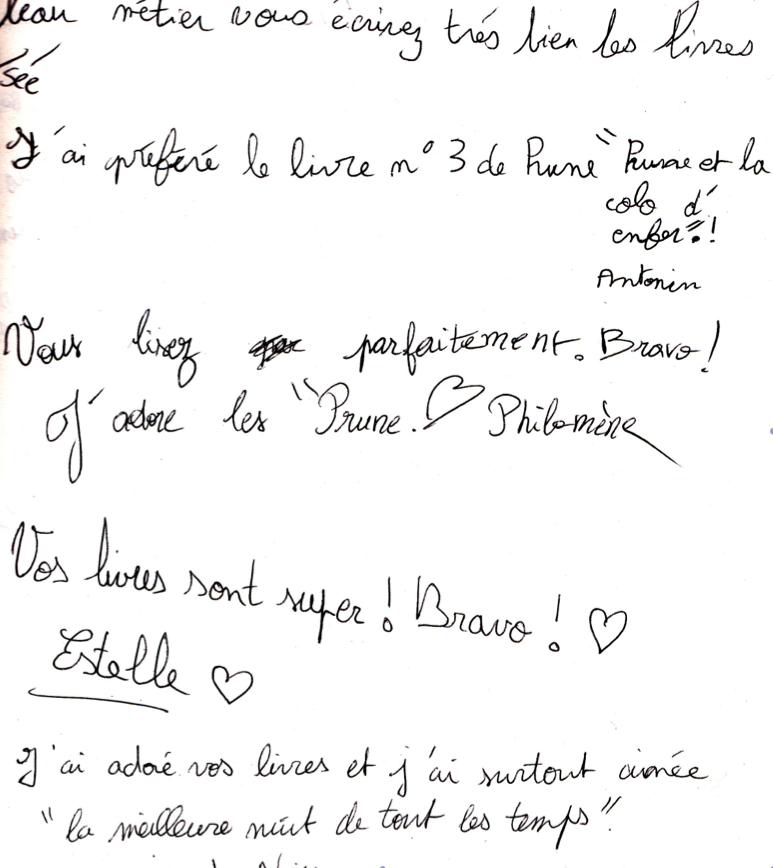 métier vous écrivez trés bien les livres
sée
J'ai préféré le livre n° 3 de Prune "Prune et la
colo d'
enfer"!
Antonin
Vous lisez parfaitement. Bravo!
J'adore les "Prune. ♡ Philomène
Vos livres sont super! Bravo! ♡
Estelle ♡
J'ai adoré vos livres et j'ai surtout aimée
"la meilleure nuit de tout les temps"